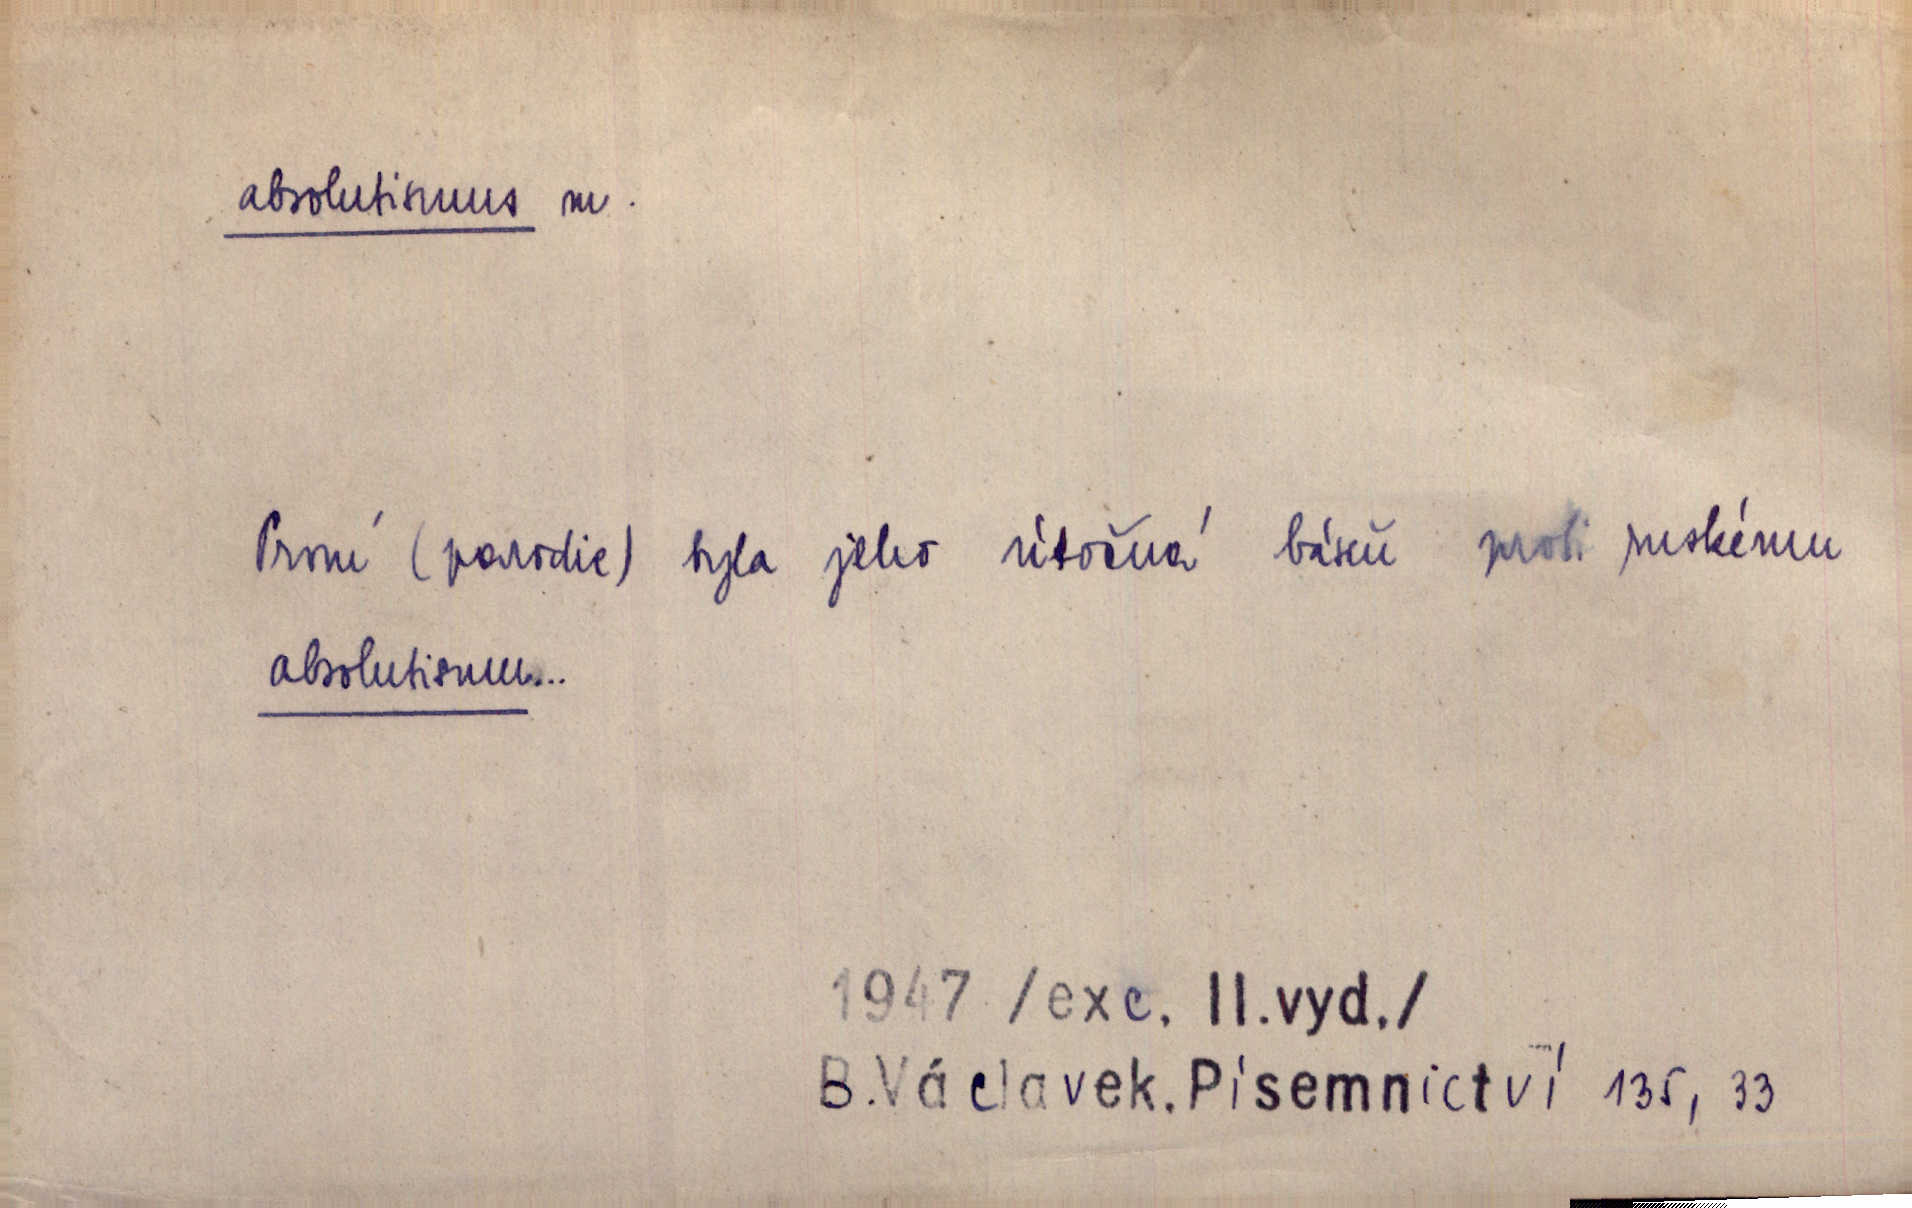 absolutismus m.
První (parodie) byla jeho útočná báseň proti ruskému
absolutismu...
1947 /exc. II.vyd./
B.Václavek.Písemnictví 135, 33